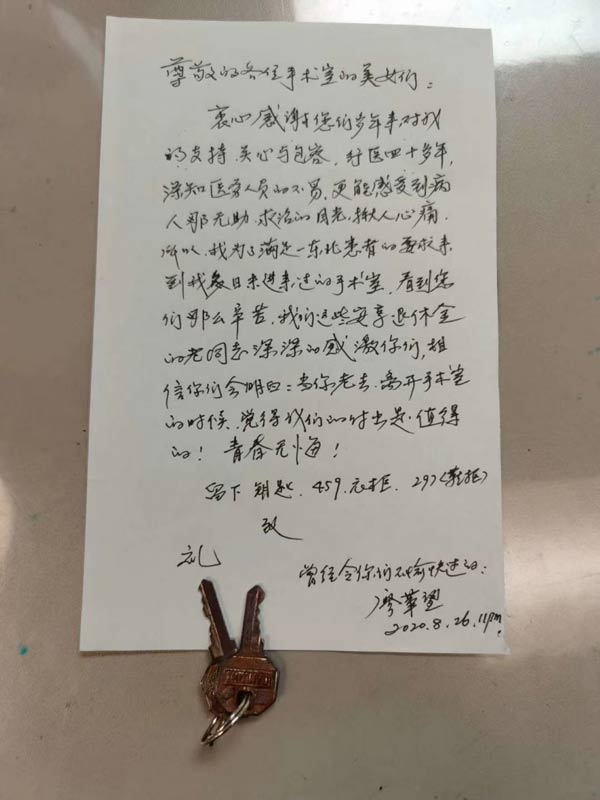 尊敬的各位手术室的美女们：
衷心感谢您们多年来对我
的支持、关心与包容，行医四十多年，
深知医务人员的不易，更能感受到病
人那无助、求治的目光，揪人心痛，
所以，我为了满足一东北患者的要求来
到我多日未进来过的手术室，看到您
们那么辛苦，我们这些安享退休金
的老同志深深的感激你们，相
信你们会明白：当你老去，离开手术室
的时候，觉得我们的付出是值得
的！青春无悔！
留下 钥匙、459.衣柜、297(鞋柜)
致
礼
曾经令你们不愉快过的：
廖華望
2020.8.26.11pm